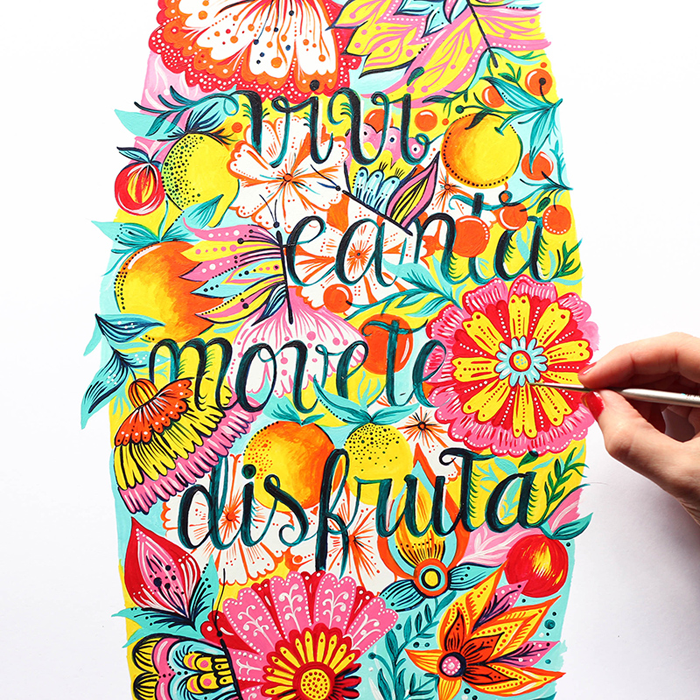 viví
cantá
movete
disfrutá